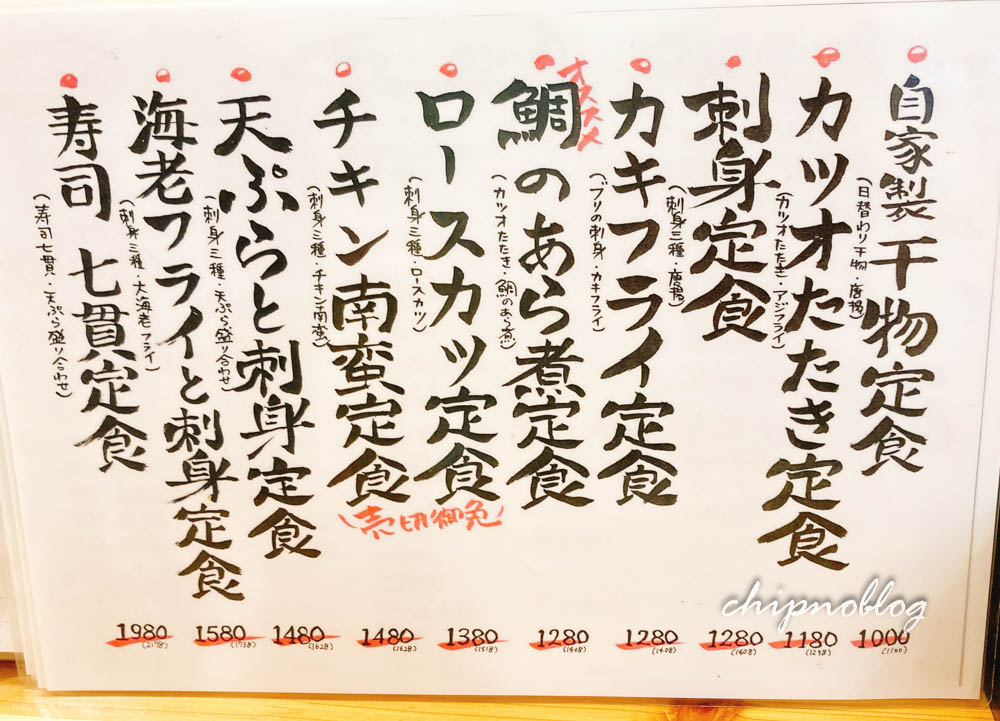 自家製干物定食
(日替わり干物・唐揚)
1000
(1100)
カツオたたき定食
(カツオたたき・アジフライ)
1180
(1298)
刺身定食
(刺身三種・唐揚)
1280
(1408)
カキフライ定食
(ブリの刺身・カキフライ)
1280
(1408)
オススメ
鯛のあら煮定食
(カツオたたき・鯛のあら煮)
1280
(1408)
ロースカツ定食
(刺身三種・ロースカツ)
1380
(1518)
チキン南蛮定食
(刺身三種・チキン南蛮)
1480
(1628)
(売切御免)
天ぷらと刺身定食
(刺身三種・天ぷら盛り合わせ)
1480
(1628)
海老フライと刺身定食
(刺身三種・大海老フライ)
1580
(1738)
寿司七貫定食
(寿司七貫・天ぷら盛り合わせ)
1980
(2178)
chipnoblog